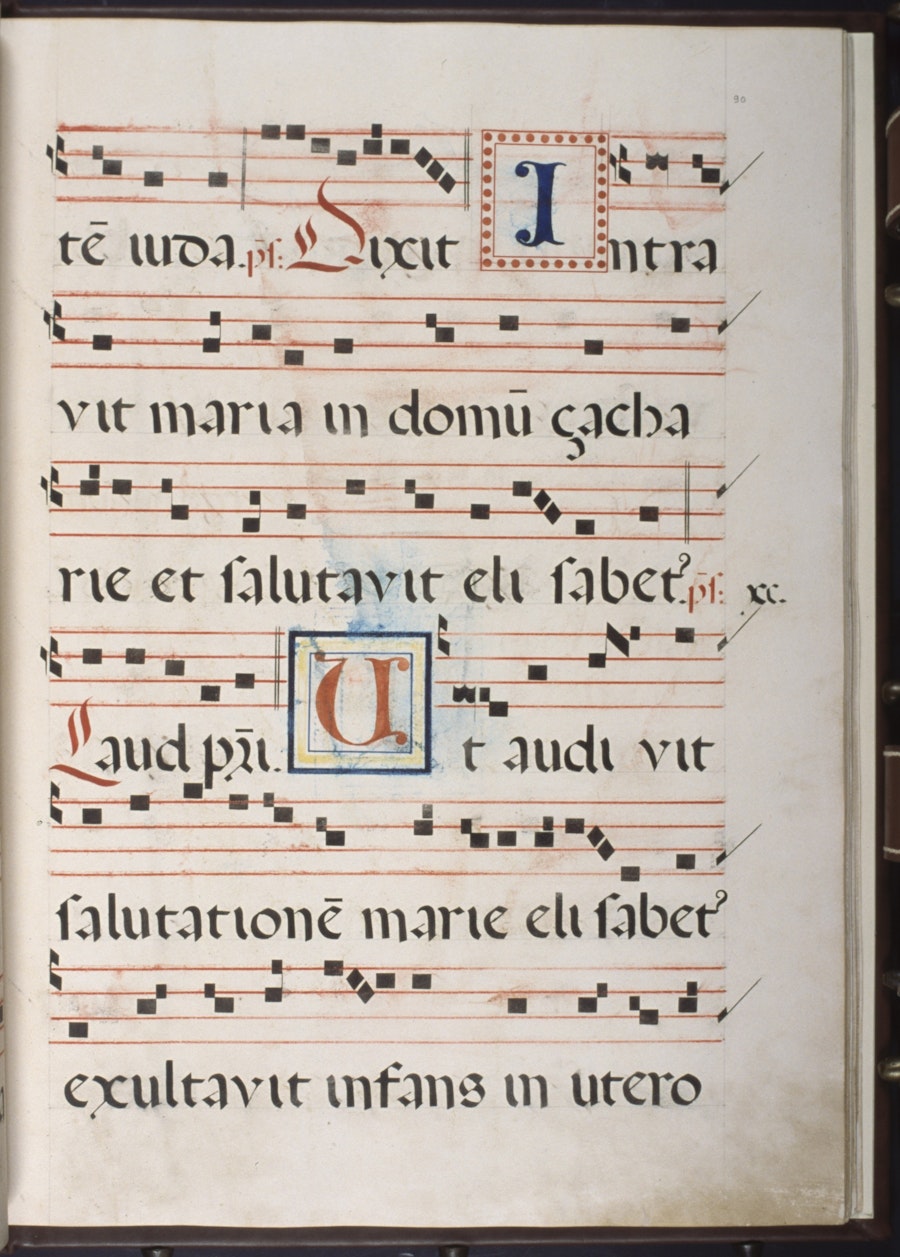 90
tē iuda. ps̄: Dixit Intra
vit maria in domū çacha
rie et salutavit eli sabetꝰ. ps̄: xc.
Laud pr̄i. Ut audi vit
salutationē marie eli sabetꝰ
exultavit infans in utero